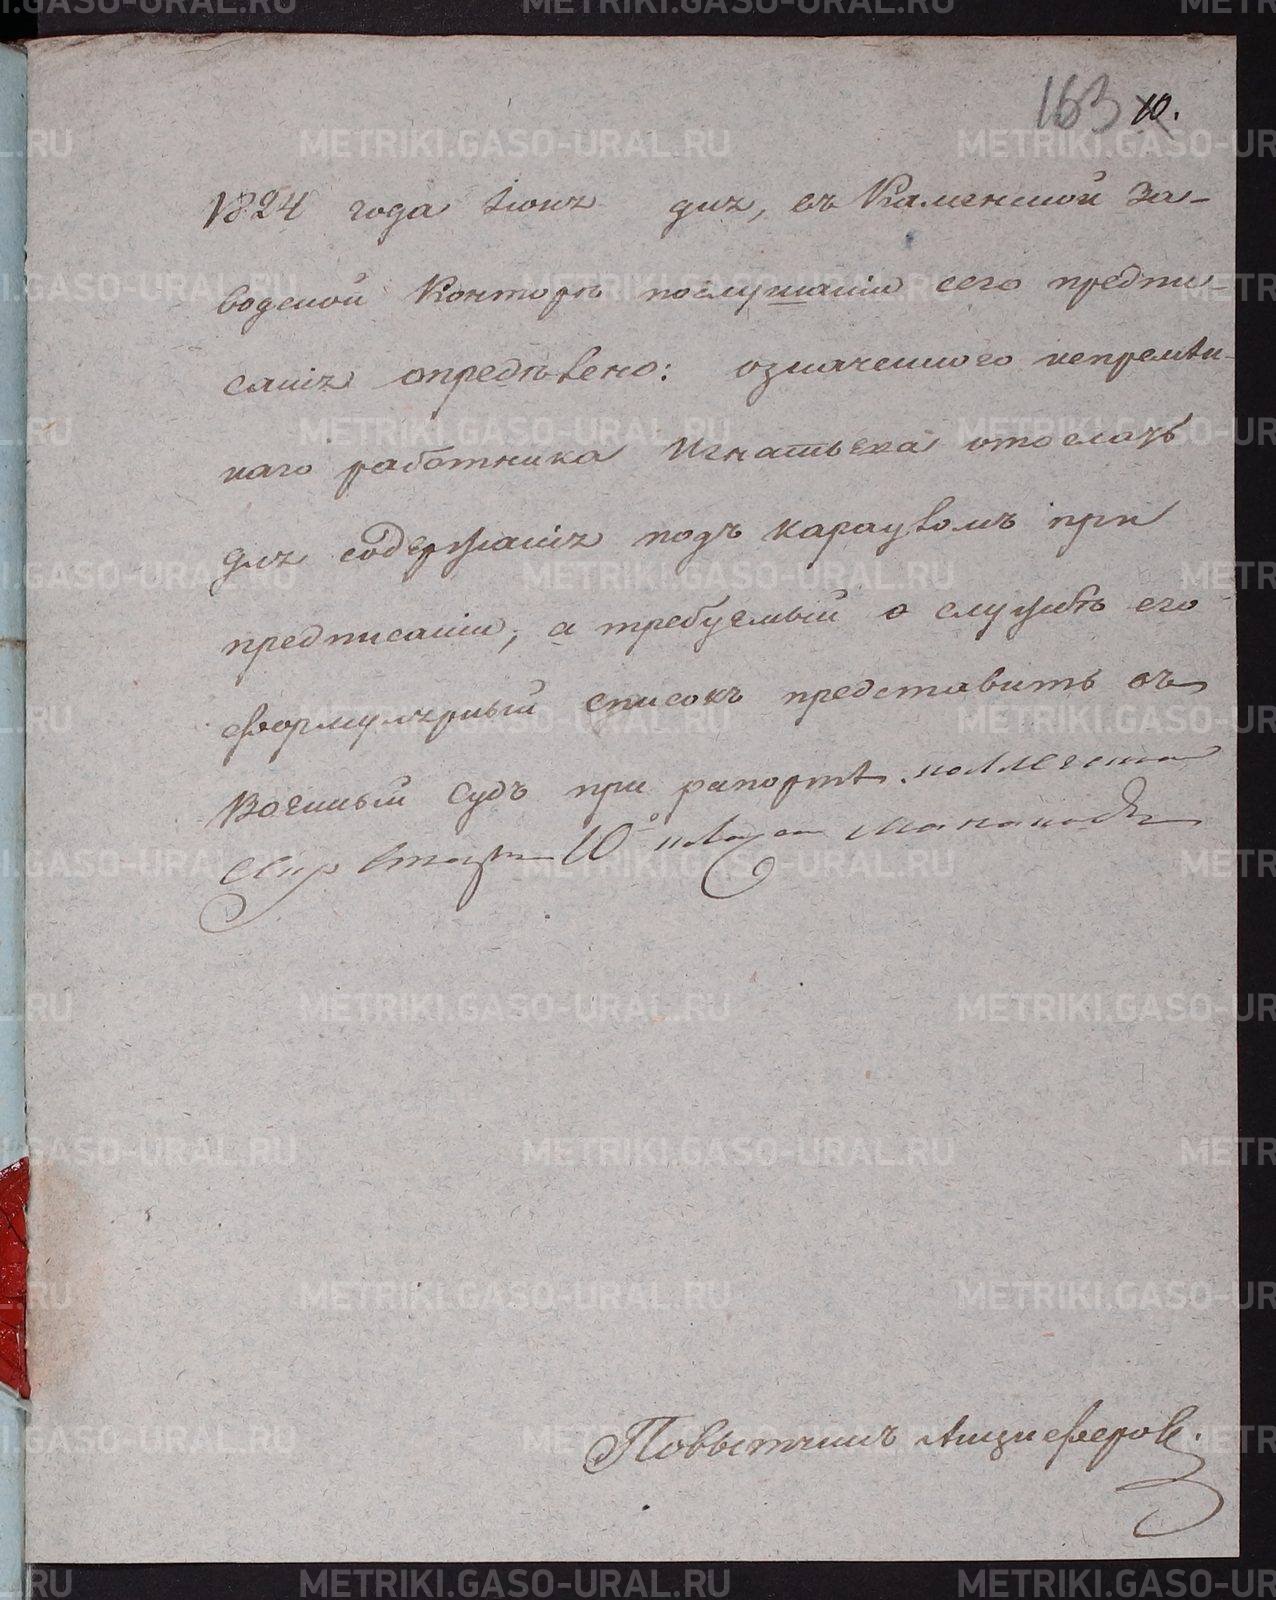 163 10.
1824 года Іюня дня, въ Каменской За-
водской Конторѣ послушаніи сего предпи-
санія опредѣлено: означенного непремѣн-
наго работника Игнатьева отослать
для содержанія подъ карауломъ при
предписаніи, а требуемый о службѣ его
формулярный списокъ представить въ
Военный Судъ при рапортѣ.
Повытчикъ Анциферовъ.
METRIKI.GASO-URAL.RU